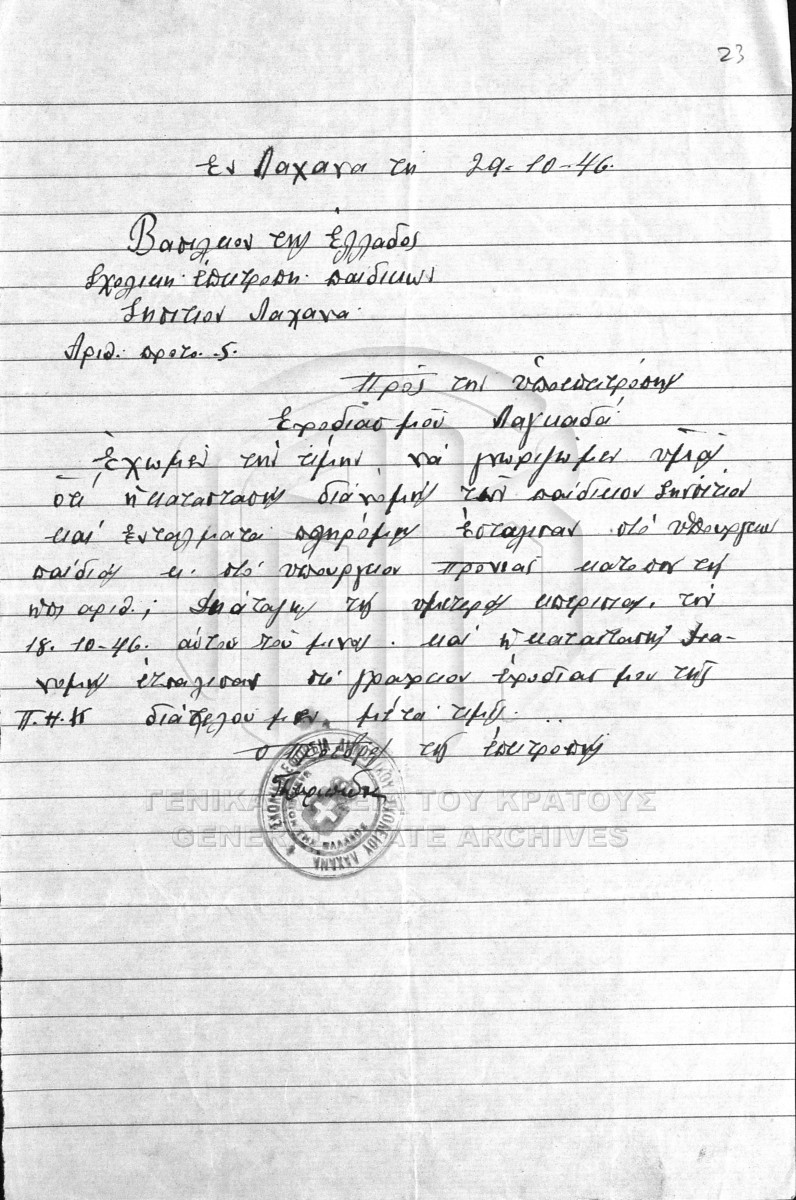 23
Εν Λαχανα τη 29-10-46.
Βασιλειον της Ελλαδος
Σχολικη επιτροπη παιδικων
Σησιτιον Λαχανα
Αριθ. προτο. 5.
Προς την υποεπιτροπην
Εφοδιασμου Λαγκαδα
Έχωμεν την τιμην να γνωριζωμεν υμας
οτι η καταστασης διανομης των παιδικον Σησιτιον
και ενταλματα πληρομης εσταλισαν στο υπουργειον
παιδιας κ. στο υπουργειον Προνιας κατοπον τη
αριθ. της υμετερας τον
18-10-46. αυτου του μηνος. και η καταστασης δια-
νομης εσταλισαν στο γραφειον εφοδιασμου της
Π.Η.Κ διατελουμεν μετα τιμης.
ο Προεδρος της επιτροπης
ΣΧΟΛΙΚΗ ΕΦΟΡΕΙΑ ΔΗΜΟΤΙΚΟΥ ΣΧΟΛΕΙΟΥ ΛΑΧΑΝΑ
ΓΕΝΙΚΑ ΑΡΧΕΙΑ ΤΟΥ ΚΡΑΤΟΥΣ
GENERAL STATE ARCHIVES